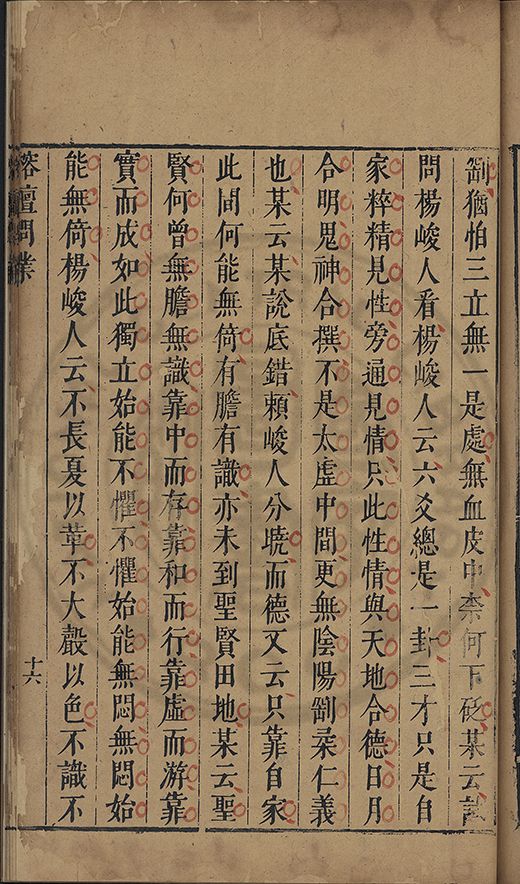 劄猶怕三立無一是處無血皮中柰何下砭某云試
問楊峻人看楊峻人云六爻總是一卦三才只是自
家粹精見性旁通見情只此性情與天地合德日月
合明鬼神合撰不是太虛中間更無陰陽劄朶仁義
也某云某說底錯賴峻人分曉而德又云只靠自家
此間何能無倚有膽有識亦未到聖賢田地某云聖
賢何曾無膽無識靠中而存靠和而行靠虛而游靠
實而成如此獨立始能不懼不懼始能無悶無悶始
能無倚楊峻人云不長夏以革不大嚴以色不識不
榕壇問業
十六